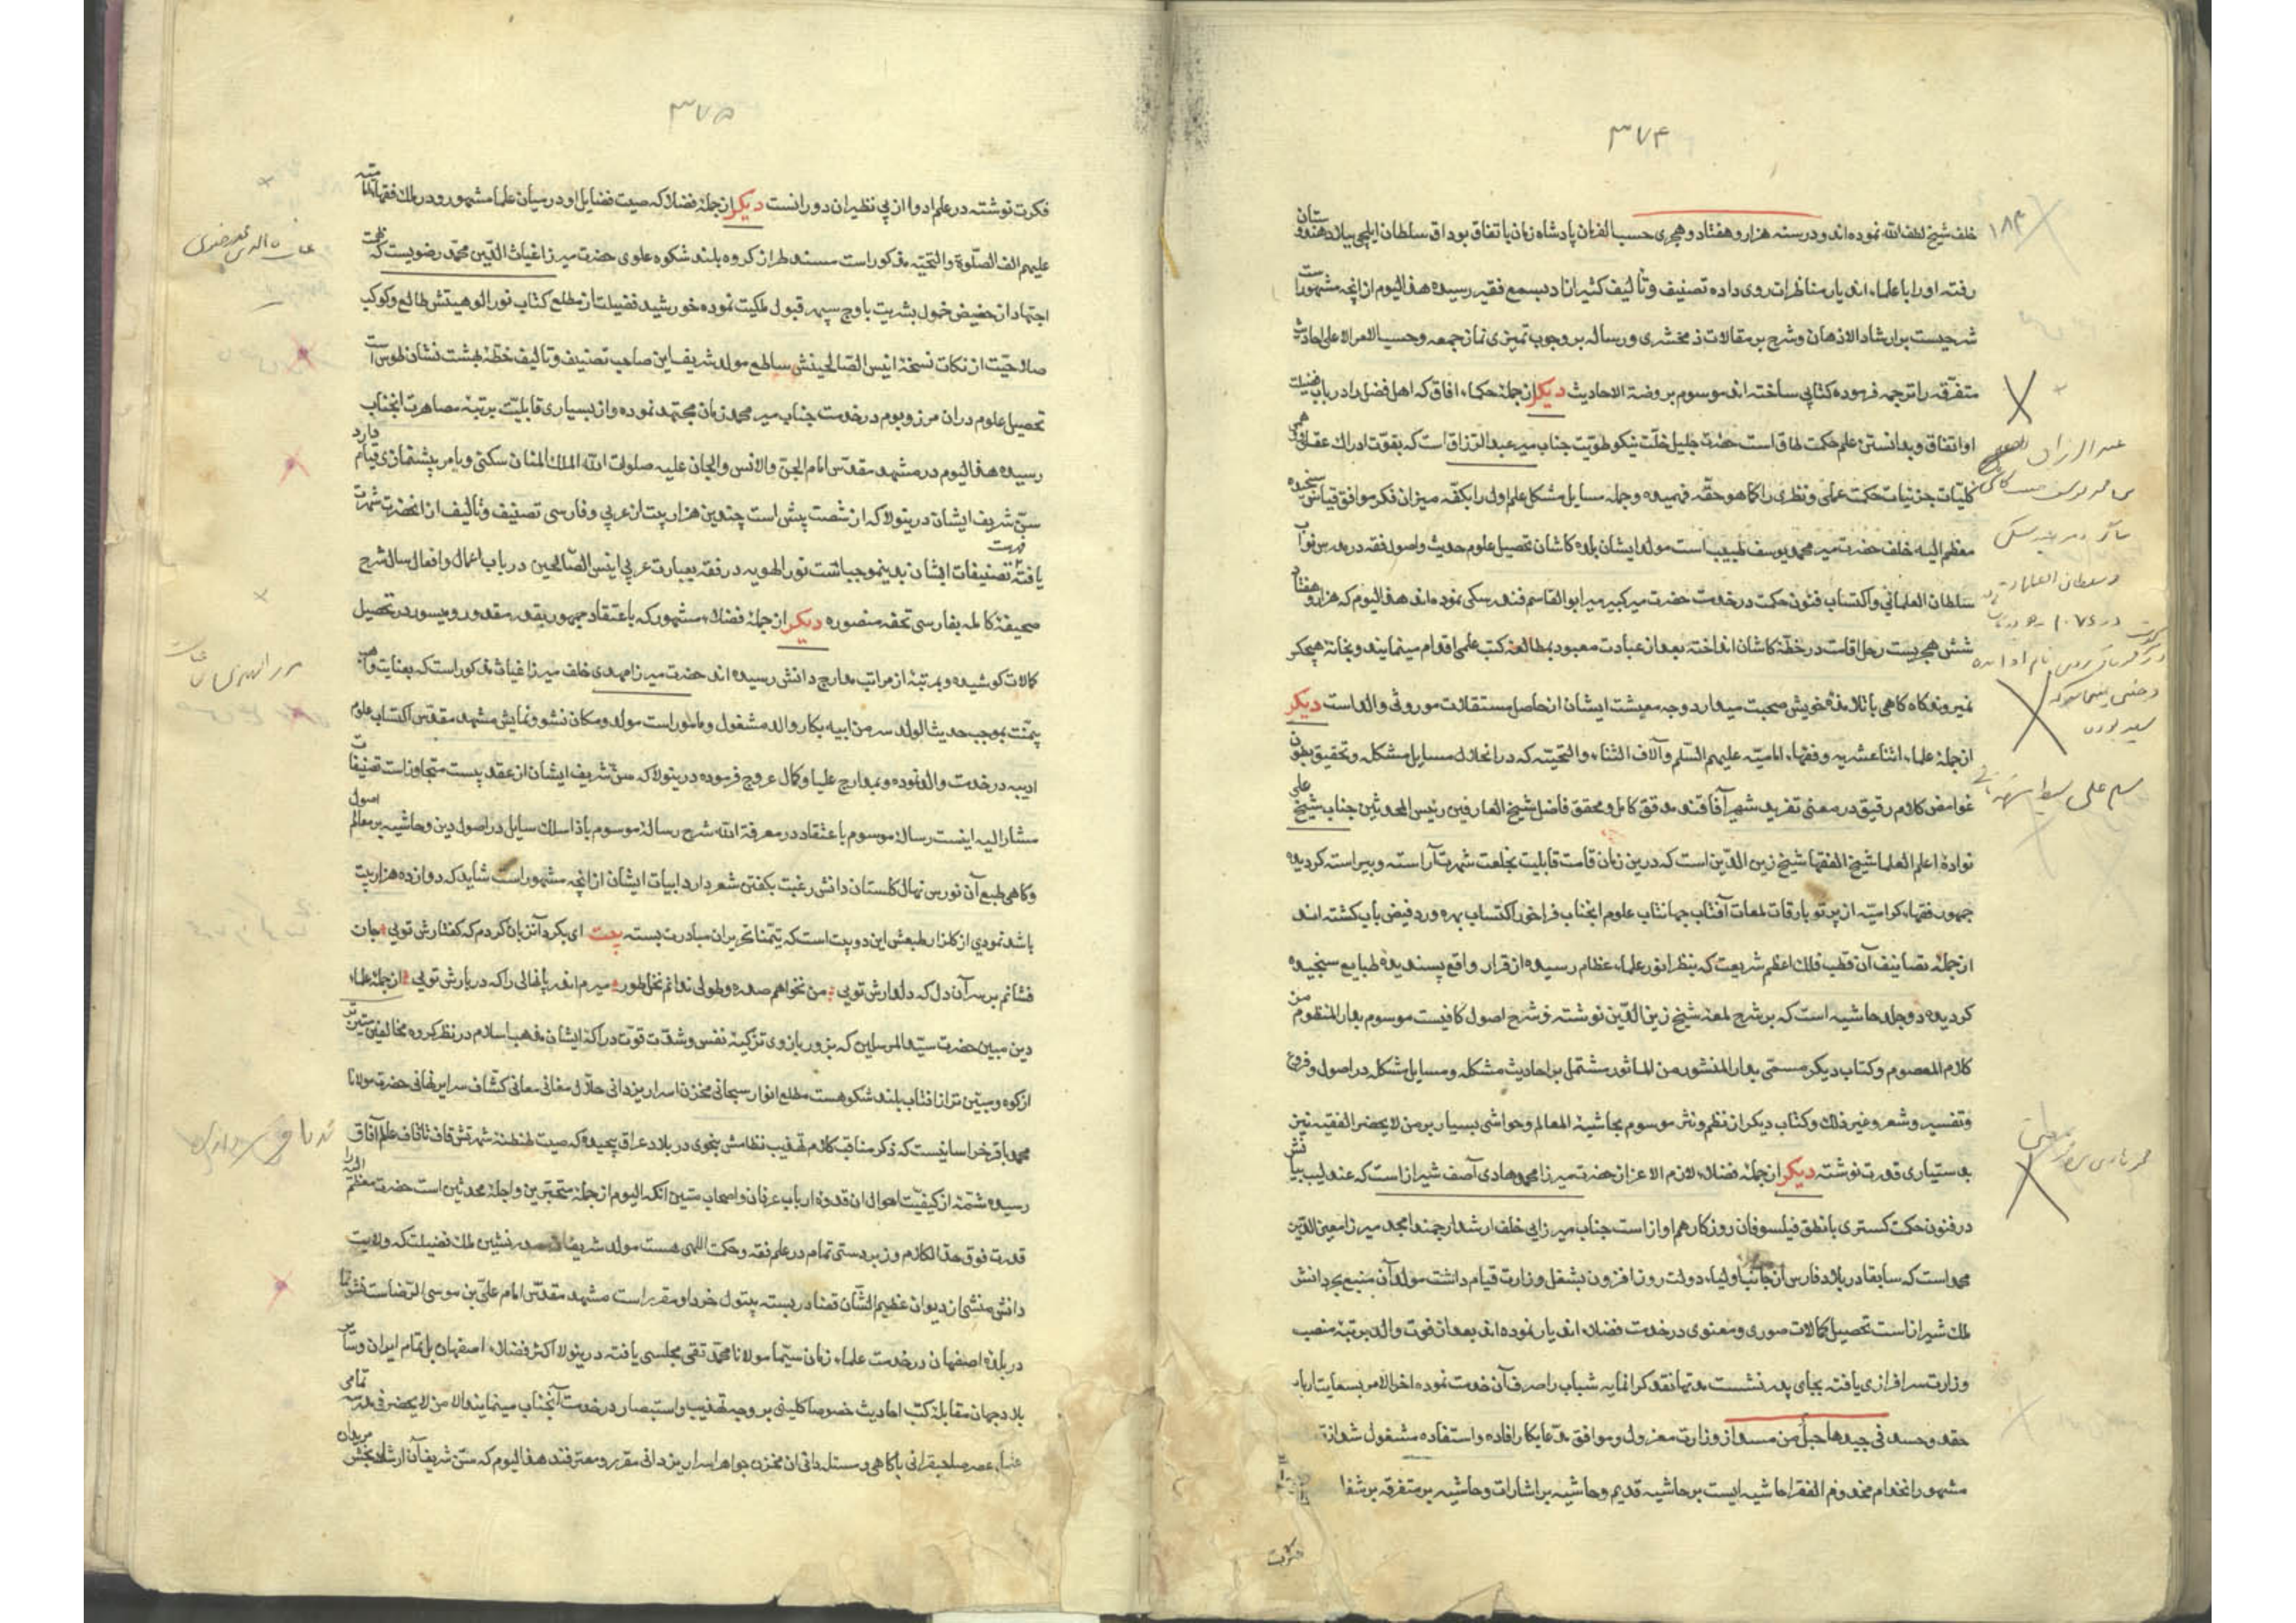 ۳۷۴
خلف شیخ لطف الله نموده اند و در سنه هزار و هفتاد و هجری حسب الفرمان پادشاه زمان باتفاق بوداق سلطان ایلچی ببلاد هندوستان
رفته او را با علماء اندیار مناظرات روی داده تصنیف و تألیف کثیر از و بسمع فقیر رسیده هذا الیوم از آنچه مشهور است
شرحیست بر ارشاد الاذهان و شرح بر مقالات زمخشری و رساله بر وجوب نماز جمعه و حسب الامر الاعلی احادیث
متفرقه را ترجمه فرموده کتابی ساخته اند موسوم بروضة الاحادیث دیکر از جمله حکماء آفاق که اهل فضل را در باب فضیلت
او اتفاق و بدانستن علم حکمت طاق است حضرت جلیل خلت نیکو طویت جناب میر عبد الرزاق است که بقوت ادراک عقل و فهمی
کلیات جزئیات حکمت عملی و نظری را کما هو حقه فهمیده و جمله مسایل مشکل علم اول را بکفه میزان فکر موافق قیاس سنجیده
معظم الیه خلف حضرت میر محمد یوسف طبیب است مولد ایشان بلده کاشان تحصیل علوم حدیث و اصول فقه در مدرس نواب
سلطان العلمائی و اکتساب فنون حکمت در خدمت حضرت میر کبیر میر ابو القاسم فندرسکی نموده اند هذا الیوم که هزار و هفتاد
شش هجریست رحل اقامت در خطه کاشان انداخته بعد از عبادت معبود بمطالعه کتب علمی اقدام مینمایند و بخانه هیچکر
نمیروند کاه کاهی با تلامذه خویش صحبت میدارد وجه معیشت ایشان از حاصل مستقلات موروثی والد است دیکر
از جمله علماء اثنا عشریه و فقهاء امامیه علیهم السلم و آلاف الثناء و التحیته که در انحلال مسایل مشکل و تحقیق بطون
غوامض کلام رقیق در معنی تفرید شهیر آفاقند مدقق کامل و محقق فاضل شیخ العارفین رئیس المحدثین جناب شیخ علی
نواده اعلم العلما شیخ الفقها شیخ زین الدین است که درین زمان قامت قابلیت بخلعت شهرت آراسته و پیراسته کردیده
جمهور فقهاء کرامیه از پرتو بارقات لمعات آفتاب جهانتاب علوم انجناب فراخور اکتساب بهره ور و فیض یاب کشته اند
از جمله تصانیف آن قطب فلک اعظم شریعت که بنظر انور علماء عظام رسیده از قرار واقع پسندیده طبایع سنجیده
کردیده دو جلد حاشیه است که بر شرح لمعه شیخ زین الدین نوشته و شرح اصول کافیست موسوم بدار المنظوم من
کلام المعصوم و کتاب دیکر مسمی بدار المنثور من الماثور مشتمل بر احادیث مشکله و مسایل مشکله در اصول و فروع
و تفسیر و شعر و غیر ذلک و کتاب دیکر از نظم و نثر موسوم بحاشیه المعالم و حواشی بسیار بر من لا یحضر الفقیه نیز
بدستیاری قدرت نوشته دیکر از جمله فضلاء لازم الاعزاز حضرت میرزا محمد هادی آصف شیراز است که عندلیب بیانش
در فنون حکمت کستری با نطق فیلسوفان روزکار هم آواز است جناب میرزایی خلف ارشد ارجمند امجد میرزا معین الدین
محمد است که سابقا در بلاد فارس از جانب اولیاء دولت روز افزون بشغل وزارت قیام داشت مولد آن منبع بحر دانش
ملک شیراز است تحصیل کمالات صوری و معنوی در خدمت فضلاء اندیار نموده اند بعد از فوت والد برتبه منصب
وزارت سرافرازی یافته بجای پدر نشست مدتها نقد کرانمایه شباب را صرف آن خدمت نموده اخر الامر بسعایت ارباب
حقد و حسد فی جیدها حبل من مسد از وزارت معزول و موافق مدعا بکار افاده و استفاده مشغول شد آنچه
مشهور از خدام مخدوم الفقرا حاشیه ایست بر حاشیه قدیم و حاشیه بر اشارات و حاشیه بر متفرقه بر شفا
۱۸۴
۳۷۵
فکرت نوشته در علم ادوا از بی نظیران دورانست دیکر از جمله فضلا که صیت فضایل او در میان علما مشهور و در ملک فقهاء امامیه
علیهم الف الصلوة و التحیته مذکور است مسند طراز کروه بلند شکوه علوی حضرت میرزا غیاث الدین محمد رضویست که
اجتهاد از حضیض خمول بشریت باوج سپهر قبول ملکیت نموده خورشید فضیلت از مطلع کتاب نور الوهیتش طالع و کوکب
صلاحیت از نکات نسخه انیس الصالحینش ساطع مولد شریف این صاحب تصنیف و تالیف خطه بهشت نشان طوس است
تحصیل علوم در ان مرز و بوم در خدمت جناب میر محمد زمان مجتهد نموده و از بسیاری قابلیت برتبه مصاهرت انجناب
رسیده هذا الیوم در مشهد مقدس امام الجن و الانس و الجان علیه صلوات الله الملک المنان سکنی و بامر پیشنمازی قیام دارد
سن شریف ایشان درینولا که از شصت پیش است چندین هزار بیت از عربی و فارسی تصنیف و تألیف از انحضرت شهرت
یافته فهرست تصنیفات ایشان بدینموجبست نور الهویه در فقه بعبارت عربی انیس الصالحین در باب اعمال و افعال سال شرح
صحیفه کامله بفارسی تحفه منصوره دیکر از جمله فضلاء مشهور که باعتقاد جمهور بقدر مقدور و میسور در تحصیل
کمالات کوشیده و بمرتبه از مراتب مدارج دانش رسیده اند حضرت میرزا مهدی خلف میرزا غیاث مذکور است که بعنایت واهب
بیمنت بموجب حدیث الولد سر من ابیه بکار والد مشغول و مامور است مولد و مکان نشو و نمایش مشهد مقدس اکتساب علوم
ادبیه در خدمت والد نموده و بمدارج علیا و کمال عروج فرموده درینولا که سن شریف ایشان از عقد بیست متجاوز است تصنیفات
مشار الیه اینست رساله موسوم باعتقاد در معرفة الله شرح رساله موسوم باذا سلک سایل در اصول دین و حاشیه بر معالم اصول
و کاهی طبع آن نورس نهال کلستان دانش رغبت بکفتن شعر دارد ابیات ایشان از آنچه مشهور است شاید که دوازده هزار بیت
باشد نمودی از کلزار طبعش این دو بیت است که تیمنا بتحریر ان مبادرت بسته بیت ای بکرد آنزبان کردم که کفتارش تویی جان
فشانم بر سر آن دل که دلدارش تویی من نخواهم صدره و طوبی ندانم نخل طور میرم اندر پا نهالی را که دربارش تویی از جمله علماء
دین مبین حضرت سید المرسلین که بزور بازوی تزکیه نفس و شدت قوت دراکه ایشان مذهب اسلام در نظر کروه مخالفین متین تر
از کوه و مبین تر از افتاب بلند شکوهست مطلع انوار سبحانی مخزن اسرار یزدانی حلال مغانی معانی کشاف سرایر نهانی حضرت مولانا
محمد باقر خراسانیست که ذکر مناقب کلام تهذیب نظامش بنحوی در بلاد عراق پیچیده که صیت طنطنه شهرتش قاف تا قاف عالم آفاق
رسیده شمه از کیفیت احوال ان قدوه ارباب عرفان و اصحاب متین انکه الیوم از جمله متبحرین و اجله محدثین است حضرت معظم الیه را
قدرت فوق حد الکلام و زبردستی تمام در علم فقه و حکمت اللهی هست مولد شریف صدر نشین ملک فضیلت که ولایت
دانش منشی از دیوان عظیم الشان قضا دربسته بتیول خرد او مقرر است مشهد مقدس امام علی بن موسی الرضاست نشو نما
در بلده اصفهان در خدمت علماء زمان سیما مولانا محمد تقی مجلسی یافته درینولا اکثر فضلاء اصفهان بل تمام ایران و سایر
بلاد جهان مقابله کتب احادیث خصوصا کلینی بر وجه تهذیب و استبصار در خدمت آنجناب مینمایند الا من لا یحضر فی مدرسه تمامی
علماء عصر صاحبقرانی باکاهی و مسئله دانی ان مخزن جواهر اسرار یزدانی مقر و معترفند هذا الیوم که سن شریف آن ارشاد بخش مریدان